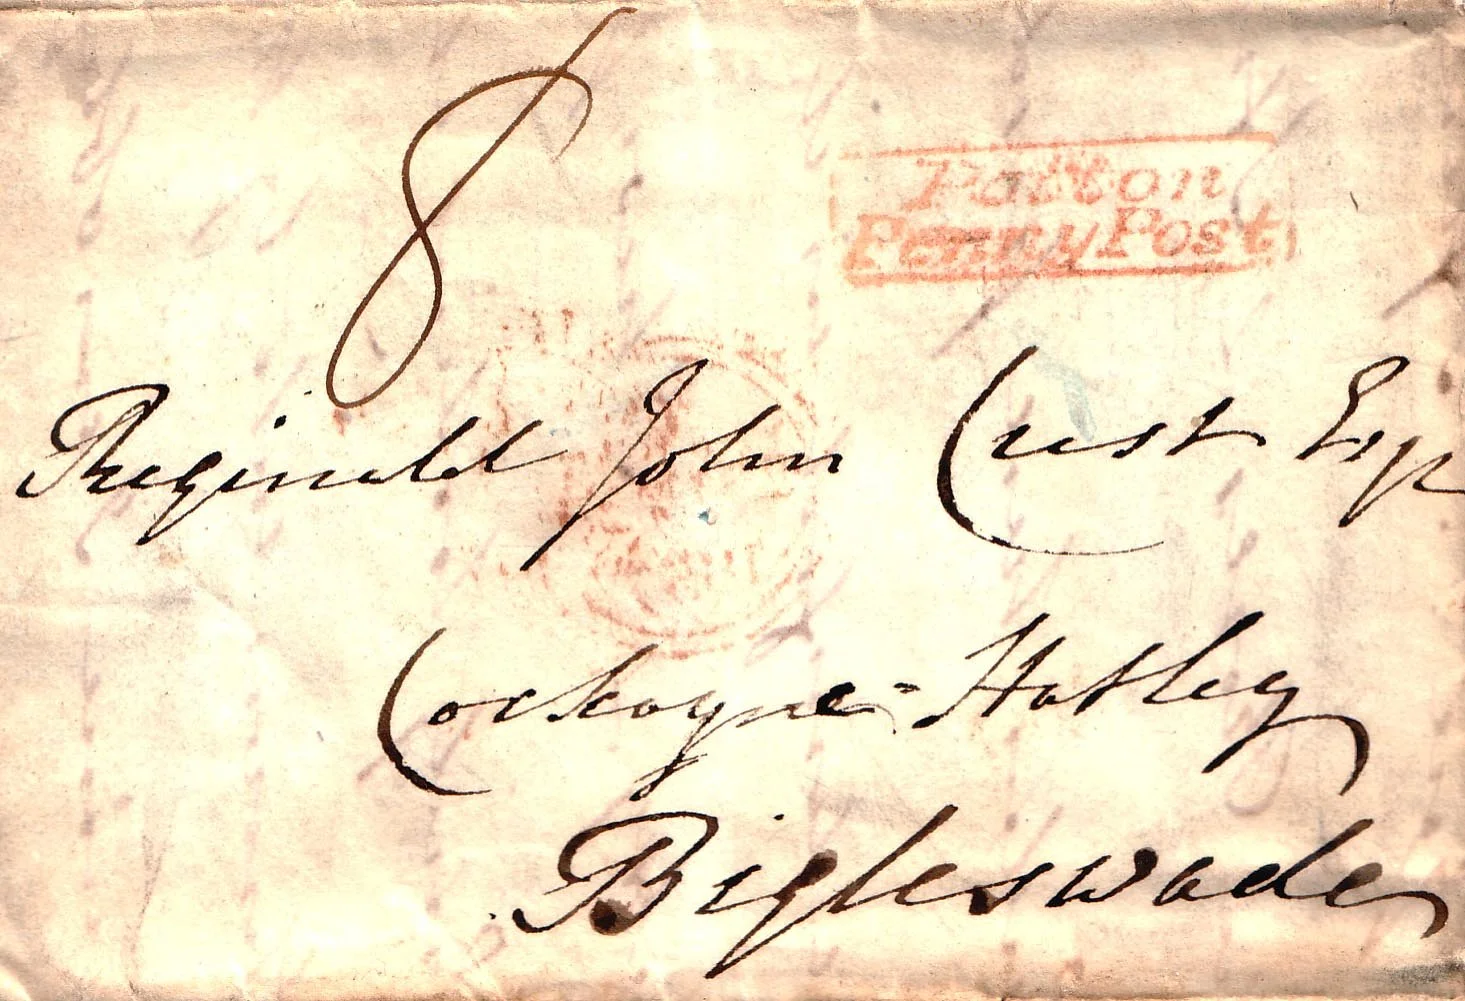 8
Potton
Penny Post
Reginald John Cust Esqr
Cockayne-Hatley
Bigleswade